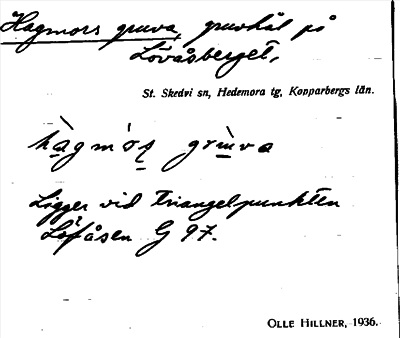 Hagmors gruva, gruvhål på
Lövåsberget,
St. Skedvi sn, Hedemora tg, Kopparbergs län.
hàgmo̍s grùva
Ligger vid triangelpunkten
Löfåsen G 97.
OLLE HILLNER, 1936.